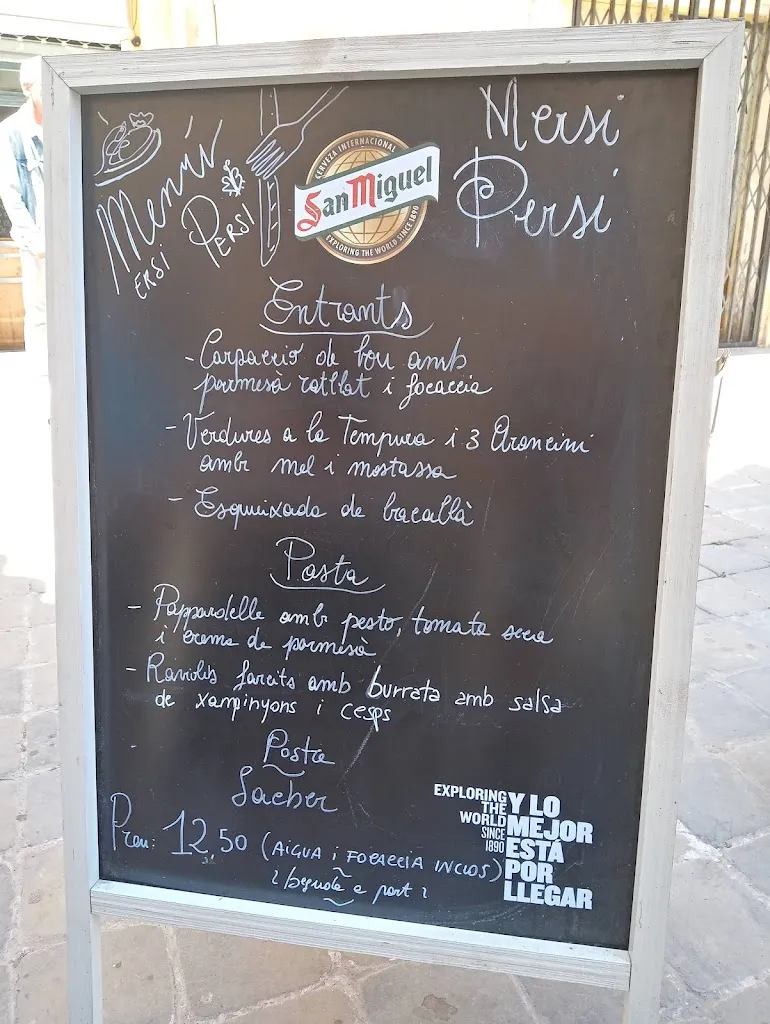 Menú
ERSI
PERSI
CERVEZA INTERNACIONAL
San Miguel
EXPLORING THE WORLD SINCE 1890
Mersi
Persi
Entrants
- Carpaccio de bou amb
parmesà ratllat i focaccia
- Verdures a la Tempura i 3 Arancini
amb mel i mostassa
- Esqueixada de bacallà
Pasta
- Pappardelle amb pesto, tomata seca
i crema de parmesà
- Raviolis farcits amb burrata amb salsa
de xampinyons i ceps
Postre
Sacher
Preu: 12,50 (AIGUA i FOCACCIA INCLOS)
Beguda a part
EXPLORING
THE
WORLD
SINCE
1890
Y LO
MEJOR
ESTÁ
POR
LLEGAR